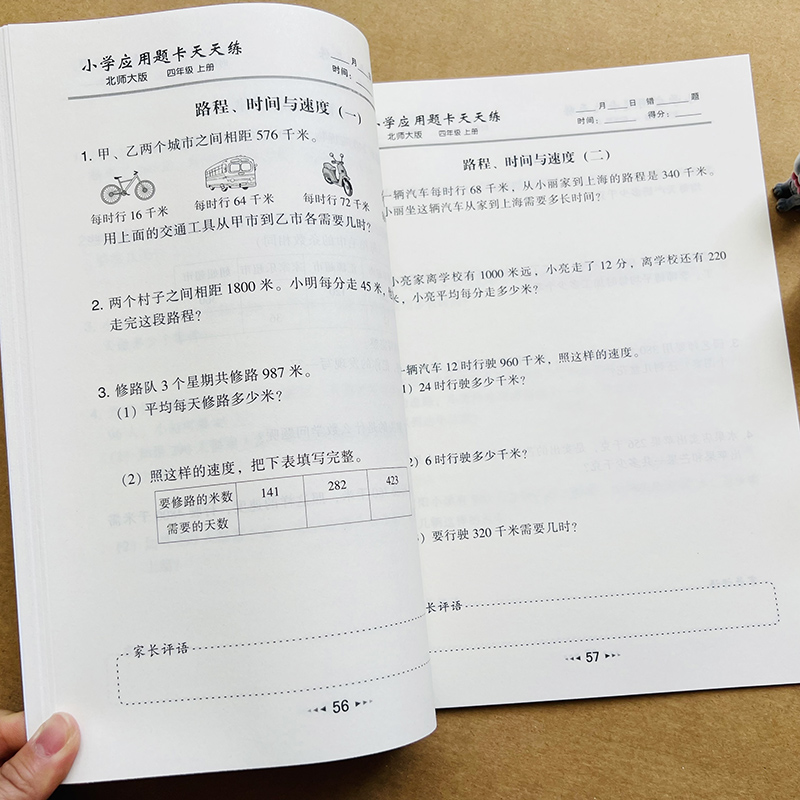 小学应用题卡天天练
北师大版 四年级 上册
月
时间：
路程、时间与速度（一）
1. 甲、乙两个城市之间相距 576 千米。
每时行 16 千米 每时行 64 千米 每时行 72 千米
用上面的交通工具从甲市到乙市各需要几时？
2. 两个村子之间相距 1800 米。小明每分走 45 米，
走完这段路程？
3. 修路队 3 个星期共修路 987 米。
（1）平均每天修路多少米？
（2）照这样的速度，把下表填写完整。
要修路的米数 141 282 423
需要的天数
家长评语
56
学应用题卡天天练
北师大版 四年级 上册
月 日 错 题
时间： 得分：
路程、时间与速度（二）
一辆汽车每时行 68 千米，从小丽家到上海的路程是 340 千米。
小丽坐这辆汽车从家到上海需要多长时间？
小亮家离学校有 1000 米远，小亮走了 12 分，离学校还有 220
米，小亮平均每分走多少米？
一辆汽车 12 时行驶 960 千米，照这样的速度。
1）24 时行驶多少千米？
2）6 时行驶多少千米？
）要行驶 320 千米需要几时？
长评语
57